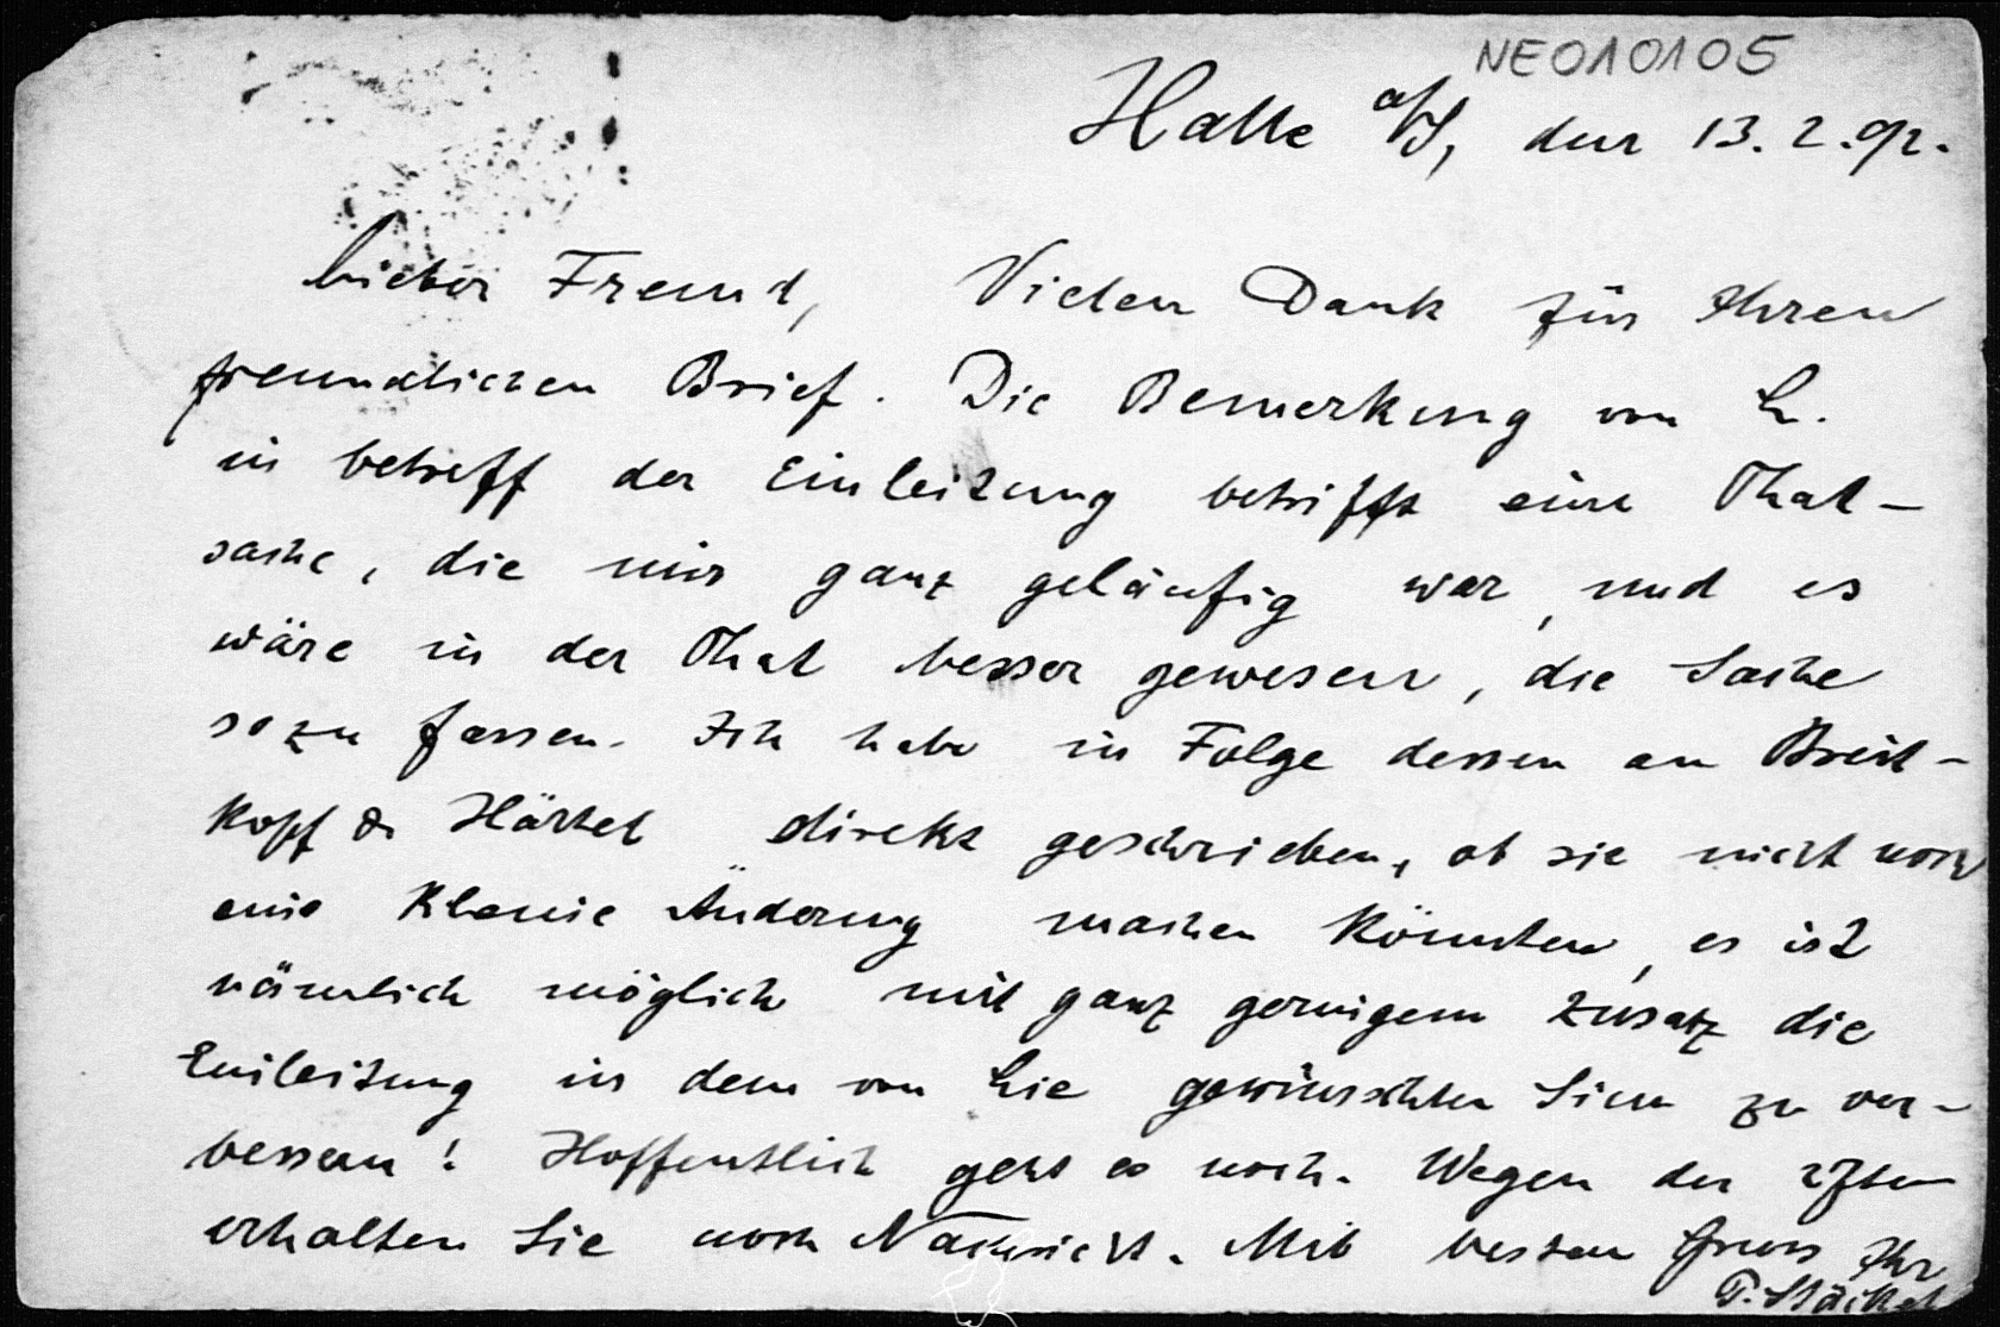 NE010105
Halle a/S, den 13. 2. 92.
Lieber Freund, Vielen Dank für Ihren
freundlichen Brief. Die Bemerkung von L.
in betreff der Einleitung betrifft eine That-
sache, die mir ganz geläufig war, und es
wäre in der That besser gewesen, die Sache
so zu fassen. Ich habe in Folge dessen an Breit-
kopf & Härtel direkt geschrieben, ob sie nicht noch
eine kleine Änderung machen könnten, es ist
nämlich möglich mit ganz geringem Zusatz die
Einleitung in dem von Lie gewünschten Sinn zu ver-
bessern! Hoffentlich geht es noch. Wegen der
erhalten Sie noch Nachricht. Mit bestem Gruss Ihr
P. Stäckel